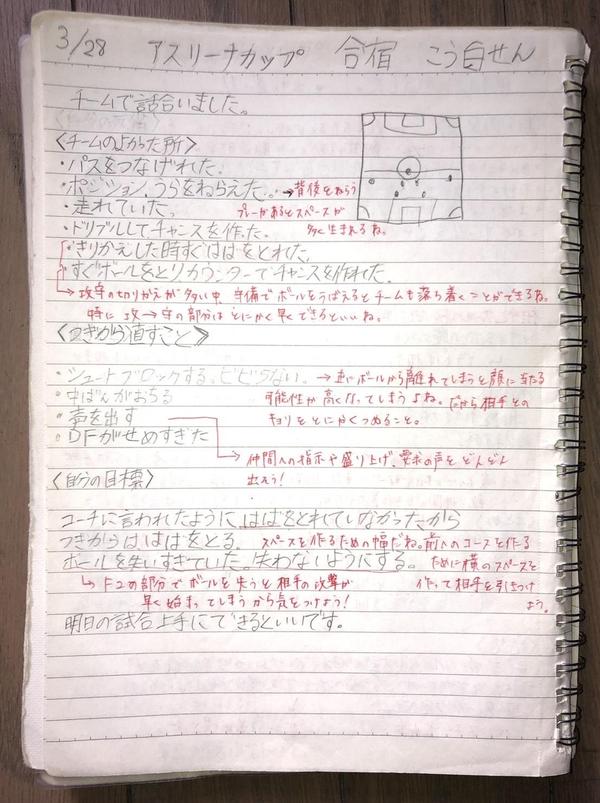 3/28 アスリーナカップ 合宿 こう白せん
チームで話合いました。
〈チームのよかった所〉
・パスをつなげれた.
・ポジション、うらをねらえた。→背後をねらう
・走れていた。 プレーがあるとスペースが
・ドリブルしてチャンスを作った. 多く生まれるね。
・きりかえした時すぐはばをとれた.
・すぐボールをとりカウンターでチャンスを作れた.
→攻守の切りかえが多い中、守備でボールをうばえるとチームも落ち着くことができるね。
特に 攻→守の部分はとにかく早くできるといいね。
〈つぎから直すこと〉
・シュートブロックする。ビビらない。→逆にボールから離れてしまうと顔に当たる
・中ばんがおちる 可能性が高くなってしまうよね。だから相手との
・声を出す キョリをとにかくつめること。
・DFがせめすぎた
→仲間への指示や盛り上げ、要求の声をどんどん
出そう!
〈自分の目標〉
コーチに言われたように、はばをとれていなかったから
つぎからははばをとる。スペースを作るための幅だね。前へのコースを作る
ボールを失いすぎていた。失わないようにする。ために横のスペースを
→の部分でボールを失うと相手の攻撃が 作って相手を引きつけ
早く始まってしまうから気をつけよう! よう。
明日の試合上手にできるといいです。